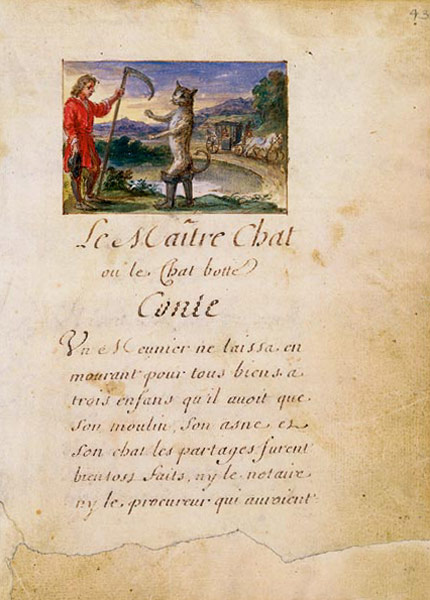 43
Le Maître Chat
ou le Chat botté
Conte
Un Meunier ne laissa en
mourant pour tous biens a
trois enfans qu'il avoit que
son moulin, son asne et
son chat les partages furent
bientost faits, ny le notaire
ny le procureur qui auroient